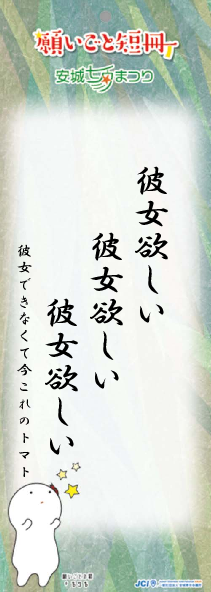 願いごと短冊
安城七夕まつり
彼女欲しい
彼女欲しい
彼女欲しい
彼女できなくて今これのトマト
JCI